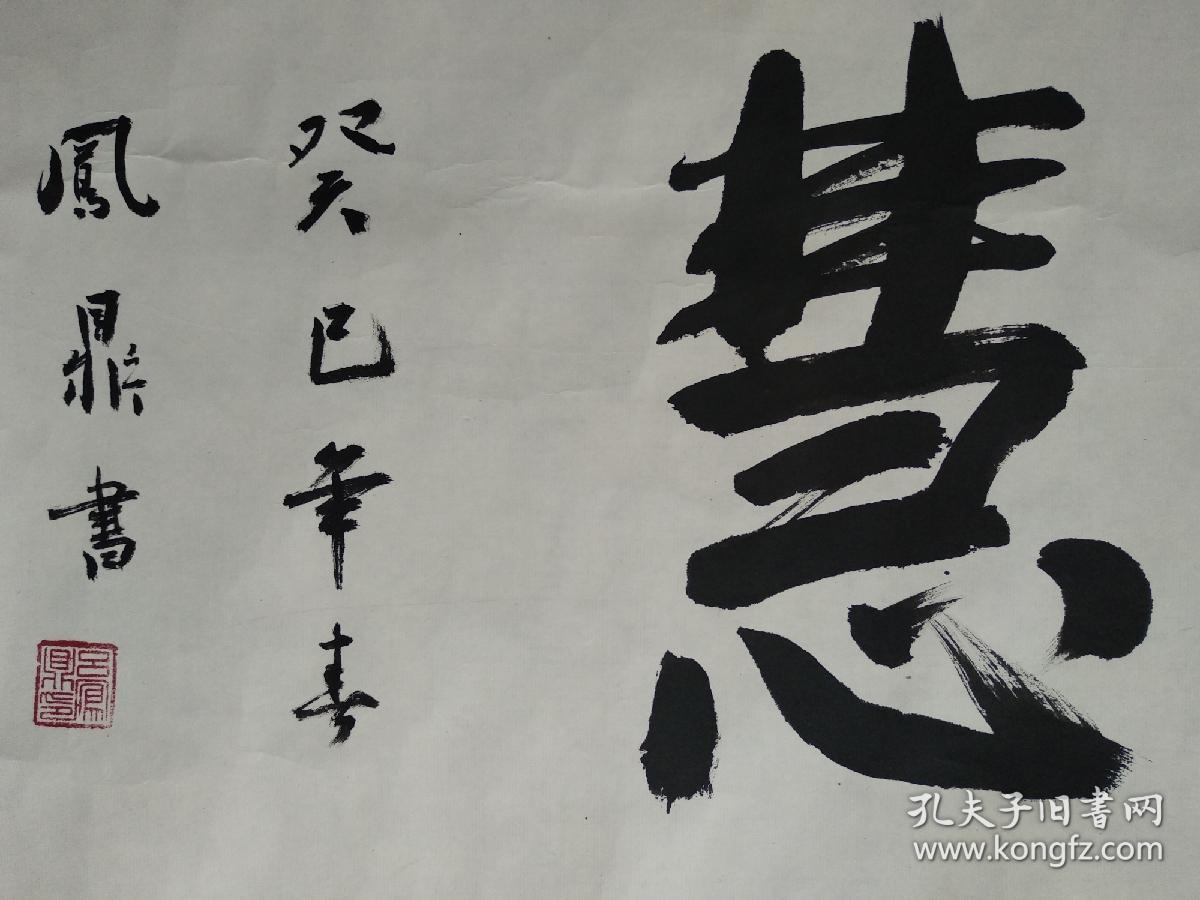 慧
癸巳年春
鳳鼎書
孔夫子旧書网
www.kongfz.com